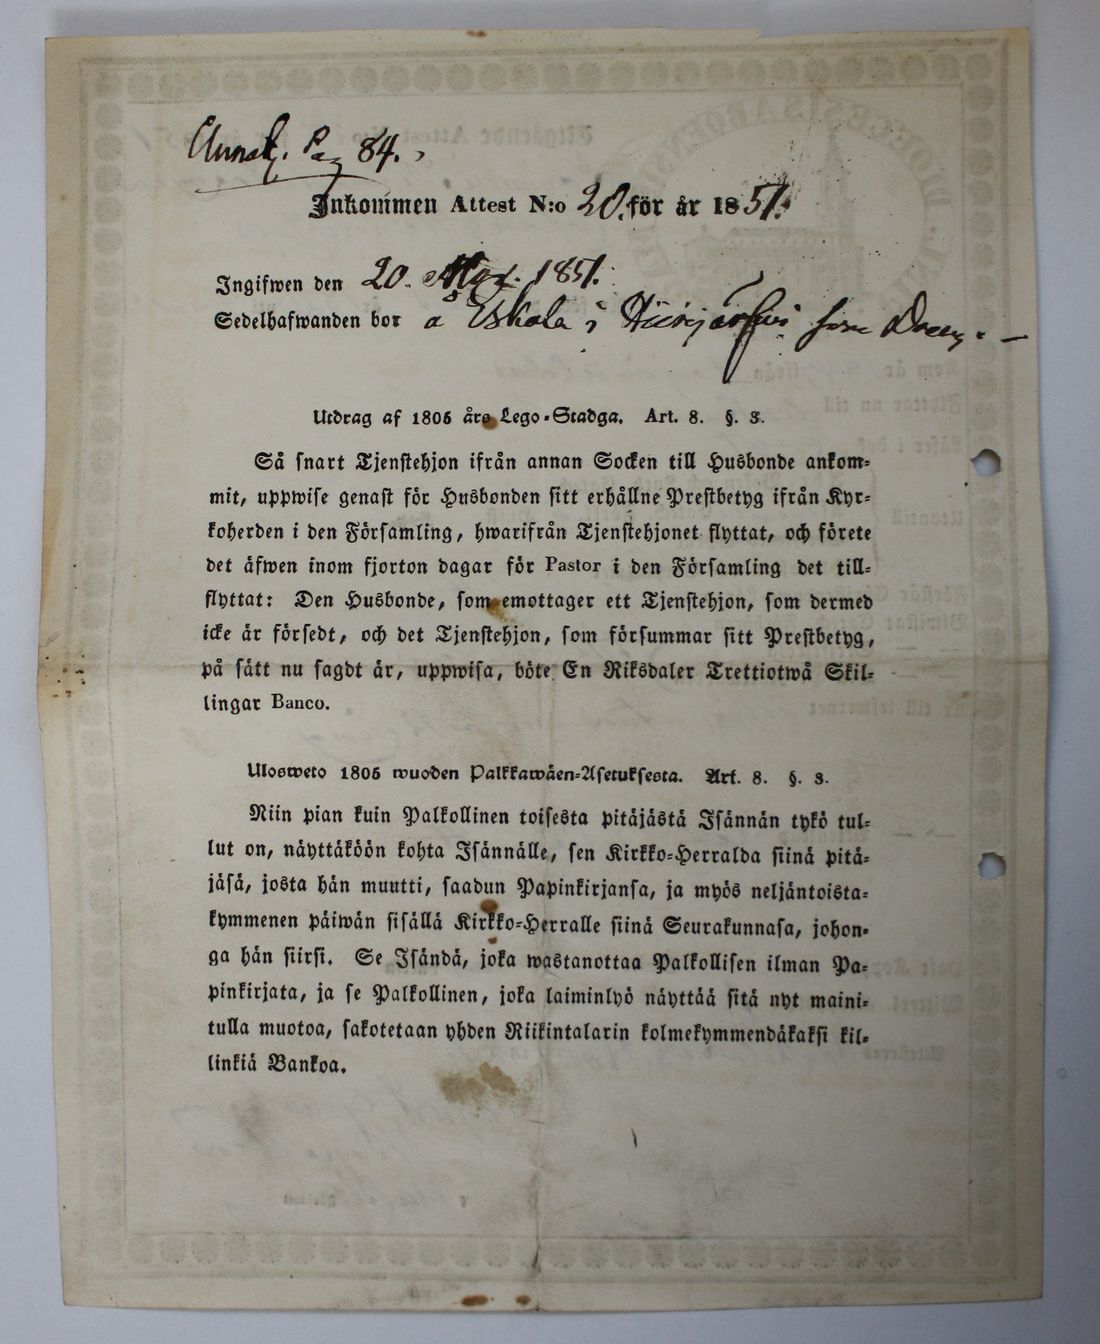 Pag 84.
Inkommen Attest N:o 20. för år 1851.
Ingifwen den 20. Nov. 1851.
Sedelhafwanden bor å Eskola i Hiirijärfvi som Dräng. —
Utdrag af 1805 års Lego-Stadga. Art. 8. §. 3.
Så snart Tjenstehjon ifrån annan Socken till Husbonde ankom-
mit, uppwise genast för Husbonden sitt erhållne Prestbetyg ifrån Kyr-
koherden i den Församling, hwarifrån Tjenstehjonet flyttat, och förete
det äfwen inom fjorton dagar för Pastor i den Församling det till-
flyttat: Den Husbonde, som emottager ett Tjenstehjon, som dermed
icke är försedt, och det Tjenstehjon, som försummar sitt Prestbetyg,
på sätt nu sagdt är, uppwisa, böte En Riksdaler Trettiotwå Skil-
lingar Banco.
Ulosweto 1805 wuoden Palkkawäen-Asetuksesta. Art. 8. §. 3.
Niin pian kuin Palkollinen toisesta pitäjästä Isännän tykö tul-
lut on, näyttäköön kohta Isännälle, sen Kirkko-Herralda siinä pitä-
jäsä, josta hän muutti, saadun Papinkirjansa, ja myös neljäntoista-
kymmenen päiwän sisällä Kirkko-Herralle siinä Seurakunnasa, johon-
ga hän siirsi. Se Isändä, joka wastanottaa Palkollisen ilman Pa-
pinkirjata, ja se Palkollinen, joka laiminlyö näyttää sitä nyt maini-
tulla muotoa, sakotetaan yhden Riikintalarin kolmekymmendäkaksi kil-
linkiä Bankoa.